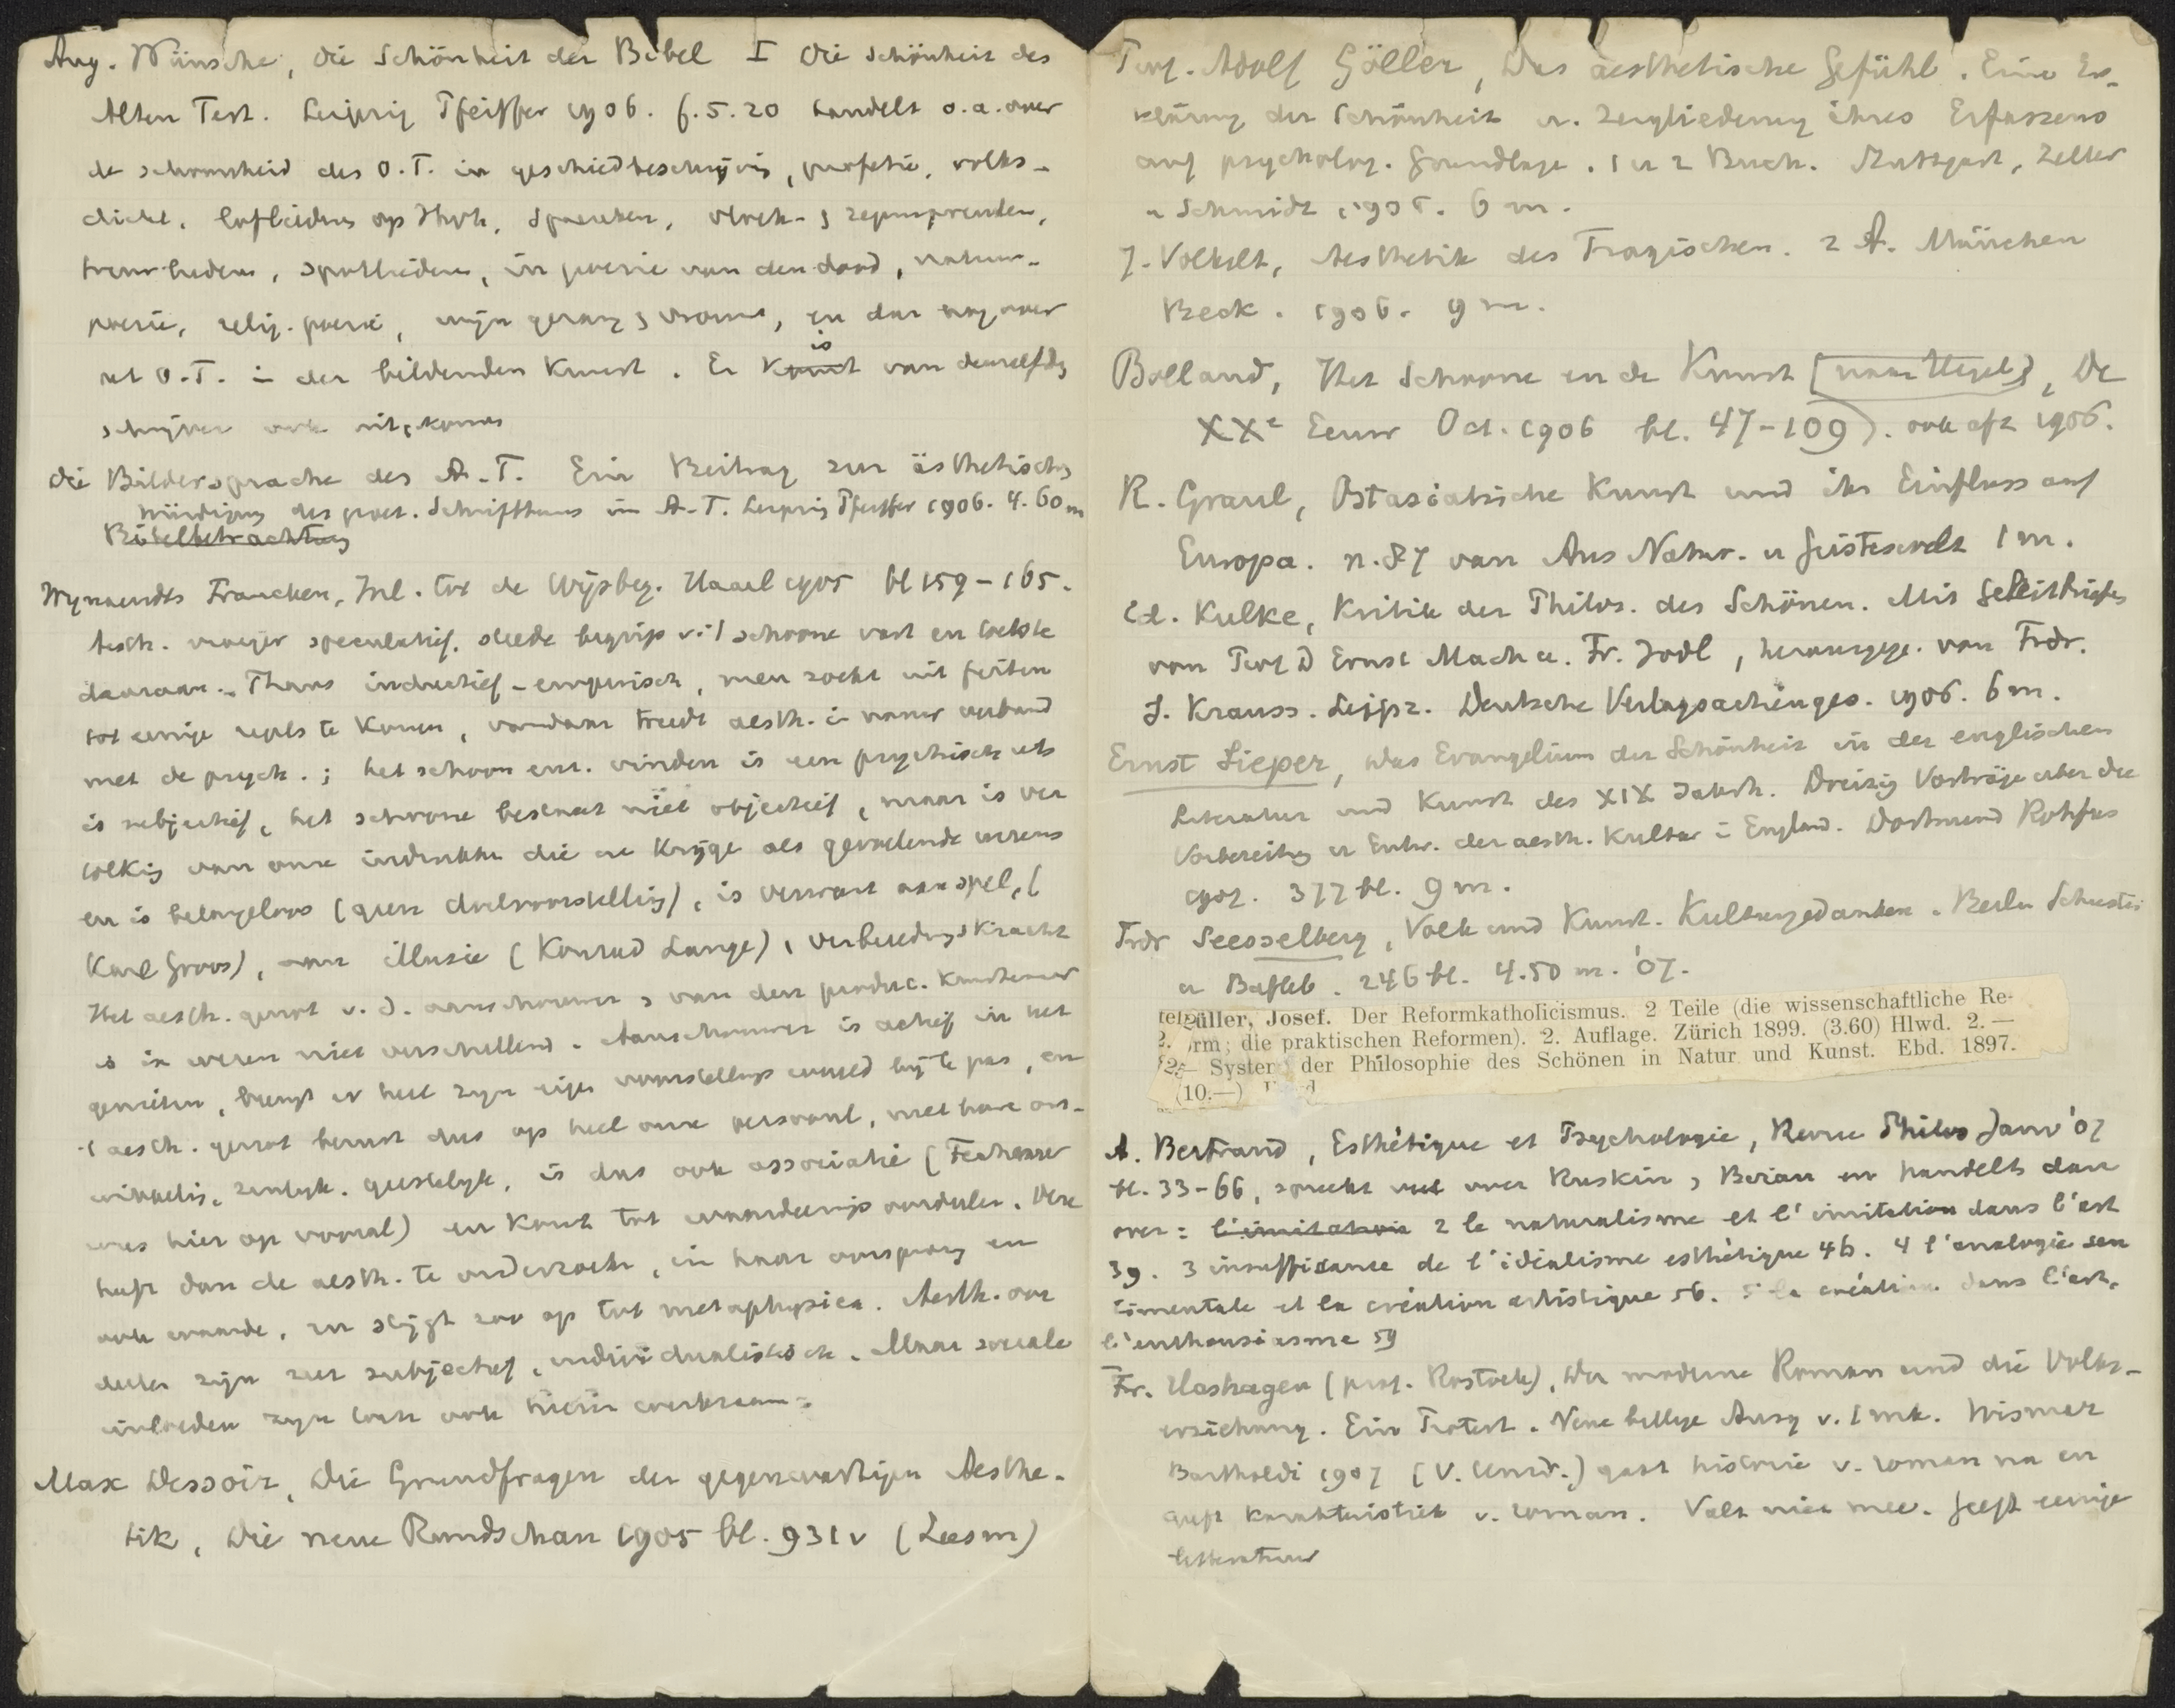 Aug. Wünsche, Die Schönheit der Bibel I Die Schönheit des
Alten Test. Leipzig Pfeiffer 1906. f. 5.20 handelt o.a. over
de schoonheid des O.T. in geschiedbeschrijving, profetie, volks-
dicht, lofliederen op JHVH, Spreuken, vloek- & zegenspreuken,
treurliederen, spotliederen, in poezie van den dood, natuur-
poezie, relig. poezie, wijn gezang & vrouw, en dan nog over
het O.T. in der bildenden Kunst. Er komt is van denzelfden
schrijver ook uitgekomen
Die Bildersprache des A.T. Ein Beitrag zur ästhetischen
Würdigung des poet. Schrifttums im A.T. Leipzig Pfeiffer 1906. 4.60 m
Bibelbetrachtung
Wynaendts Francken, Inl. tot de Wijsbeg. Haarl 1905 bl 159-165.
Aesth. vroeger speculatief, stelde begrip v. 't schoone vast en toetste
daaraan. Thans inductief-empirisch, men zoekt uit feiten
tot eenige regels te komen, vandaar treedt aesth. in nauw verband
met de psych.; het schoon enz. vinden is een psychisch iets
is subjectief, het schoone bestaat niet objectief, maar is ver
tolking van onze indrukken die we krijgen als gevoelende wezens
en is belangeloos (geen doelvoorstelling), is verwant aan spel, (
Karl Groos), aan illusie (Konrad Lange), verbeeldingskracht
Het aesth. genot v. d. aanschouwer & van den produc. kunstenaar
is in wezen niet verschillend. Aanschouwer is actief in het
genieten, brengt er heel zijn eigen voorstellings wereld bij te pas, en
't aesth. genot berust dus op heel onze persoonl., met hare ont-
wikkeling, zintuigk. geestelijk, is dus ook associatie (Fechner
wees hier op vooral) en komt tot waardeerings oordeelen. Deze
heeft dan de aesth. te onderzoeken, in haar oorsprong en
ook waarde, en stijgt zoo op tot metaphysica. Aesth. oor
deelen zijn zeer subjectief, individualistisch. Maar sociale
invloeden zijn toch ook hierin werkzaam.
Max Dessoir, Die Grundfragen der gegenwärtigen Aesthe-
tik, Die neue Rundschau 1905 bl. 931v (Leesm)
Prof. Adolf Göller, Das aesthetische Gefühl. Eine Er-
klärung der Schönheit u. Zergliederung ihres Erfassens
auf psycholog. Grundlage. 1 u 2 Buch. Stuttgart, Zeller
u Schmidt 1905. 6 m.
J. Volkelt, Aesthetik des Tragischen. 2 A. München
Beck. 1906. 9 m.
Bolland, Het Schoone en de Kunst [naar Hegel], De
XXe Eeuw Oct. 1906 bl. 47-109). ook afz 1906.
R. Graul, Ostasiatische Kunst und ihr Einfluss auf
Europa. n. 87 van Aus Natur- u Geisteswelt 1 m.
Ed. Kulke, Kritik der Philos. des Schönen. Mit Geleitbriefen
von Prof D Ernst Mach u. Fr. Jodl, herausgeg. von Frdr.
S. Krauss. Leipz. Deutsche Verlagsactienges. 1906. 6 m.
Ernst Sieper, Das Evangelium der Schönheit in der englischen
Literatur und Kunst des XIX Jahrh. Dreizig Vorträge über die
Vorbereitung u Entw. der aesth. Kultur in England. Dortmund Rohfus
1907. 377 bl. 9 m.
Frdr Seesselberg, Volk und Kunst. Kulturgedanken. Berlin Schuster
u Bufleb. 246 bl. 4.50 m. '07.
üller, Josef. Der Reformkatholicismus. 2 Teile (die wissenschaftliche Re-
rm; die praktischen Reformen). 2. Auflage. Zürich 1899. (3.60) Hlwd. 2.—
— System der Philosophie des Schönen in Natur und Kunst. Ebd. 1897.
(10.—)
A. Bertrand, Esthétique et Psychologie, Revue Philos Janv '07
bl. 33-66, spreekt veel over Ruskin, en handelt dan
over: l'imitation 2 le naturalisme et l'imitation dans l'art
39. 3 insuffisance de l'idéalisme esthétique 46. 4 l'analogie sen
timentale et la création artistique 56. 5 la création dans l'art,
l'enthousiasme 59
Fr. Hashagen (prof. Rostock), Der moderne Roman und die Volks-
erziehung. Ein Protest. Neue billige Ausg v. 1 mk. Wismar
Bartholdi 1907 (V. Univ.) gaat historie v. roman na en
geeft karakteristiek v. roman. Valt niet mee. Geeft eenige
litteratuur